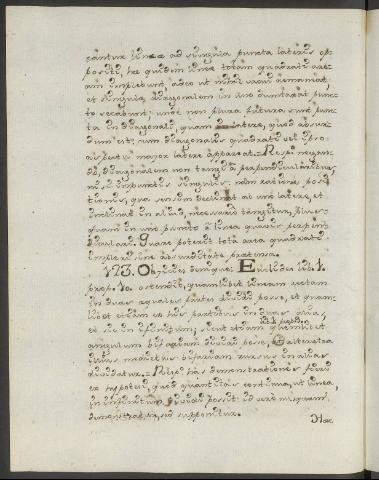 cantur lineæ ad singula puncta lateris op-
positi, hæ quidem lineæ totam quadrati are-
am implebunt, adeo ut nihil vacui remaneat,
et singulæ diagonalem in uno dumtaxat punc-
to secabunt; unde non plura futura sunt punc-
ta in diagonali, quam in latere, quod absur-
dum est; cum diagonalis quadrati vel ipso
aspectu major latere appareat. Resp. negan-
do, diagonalem non tangi a perpendicularibus,
nisi in punctis singulis: nam ratione posi-
tionis, qua sensim declinat ab uno latere, et
inclinat in aliud, necessario tangitur, plus-
quam in uno puncto a linea quavis perpen-
diculari. Quare poterit tota area quadrati
impleri sine absurditate prætensa.
123. Objicies denique: Euclides lib. 1.
prop. 10. ostendit, quamlibet lineam rectam
in duas æquales partes dividi posse, et quam-
libet etiam ex his partibus in duas alias,
et sic in infinitum; sicut etiam quemlibet
angulum bifariam dividi posse, et alterutra
ejus medietas bifariam rursus in alias
dividatur. = Resp. has demonstrationes fieri
ex hypotesi, quod quantitas continua, ut linea,
in infinitum dividi possit: id vero nusquam
demonstratur, sed supponitur.
Hæc